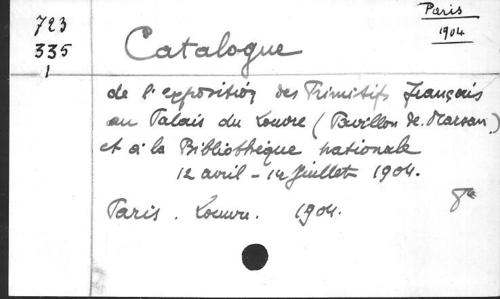 723
335
1
Paris
1904
Catalogue
de l'exposition des Primitifs français
au Palais du Louvre (Pavillon de Marsan,)
et à la Bibliothèque nationale
12 avril - 14 Juillet 1904.
Paris. Louvre. 1904. 8°